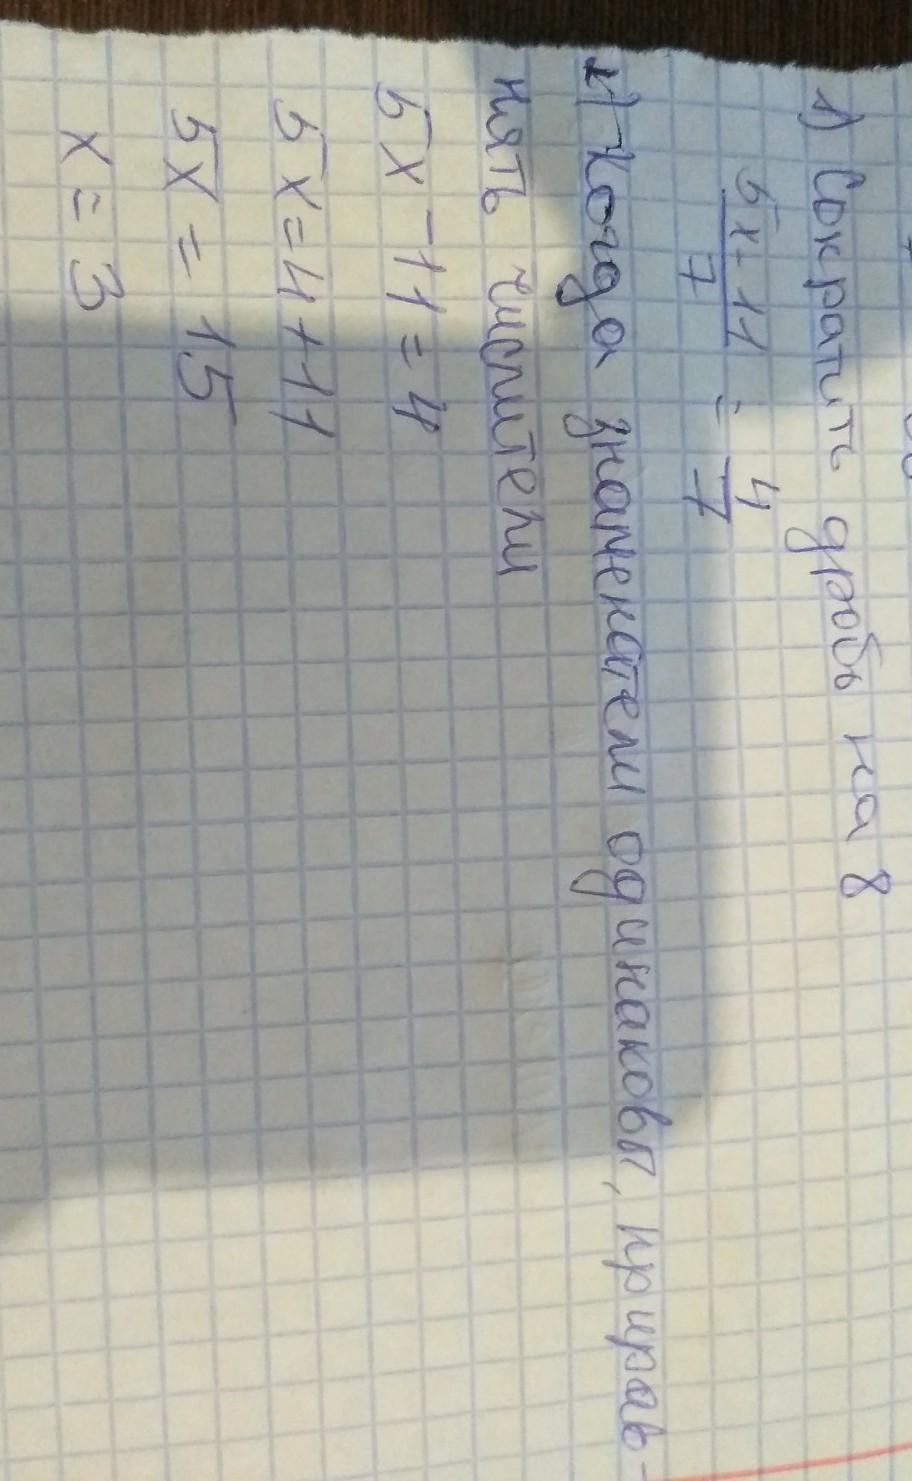 1) Сократить дробь на 8
5x-11/7 = 4/7
2) Когда знаменатели одинаковы, прирав-
нять числители
5x-11=4
5x=4+11
5x=15
x=3